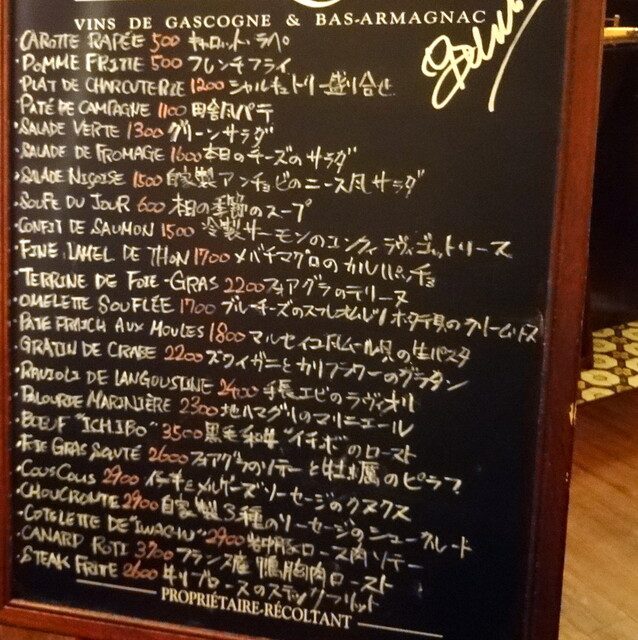 VINS DE GASCOGNE & BAS-ARMAGNAC
・CAROTTE RAPÉE 500 キャロット・ラペ
・POMME FRITTE 500 フレンチフライ
・PLAT DE CHARCUTERIE 1200 シャルキュトリー盛り合せ
・PATÉ DE CAMPAGNE 1100 田舎風パテ
・SALADE VERTE 1300 グリーンサラダ
・SALADE DE FROMAGE 1600 本日のチーズのサラダ
・SALADE NIÇOISE 1500 自家製アンチョビのニース風サラダ
・SOUPE DU JOUR 600 本日の季節のスープ
・CONFIT DE SAUMON 1500 冷製サーモンのコンフィ ラヴィゴットソース
・FINE LAMEL DE THON 1700 メバチマグロのカルパッチョ
・TERRINE DE FOIE-GRAS 2200 フォアグラのテリーヌ
・OMELETTE SOUFLÉE 1700 ブルーチーズのスフレオムレツ ホタテ貝のクリームソース
・PATE FRAICH AUX MOULES 1800 マルセイユ風ムール貝の生パスタ
・GRATIN DE CRABE 2200 ズワイガニとカリフラワーのグラタン
・RAVIOLI DE LANGOUSTINE 2400 手長エビのラヴィオリ
・PALOURDE MARINIÈRE 2300 地ハマグリのマリニエール
・BŒUF "ICHIBO" 3500 黒毛和牛"イチボ"のロースト
・FOIE GRAS SAUTÉ 2600 フォアグラのソテーと牡蠣のピラフ
・COUSCOUS 2900 仔羊とメルゲーズソーセージのクスクス
・CHOUCROUTE 2900 自家製3種のソーセージのシュークルート
・COTELETTE DE "IWACHU" 2900 岩中豚ロース肉ソテー
・CANARD ROTI 3200 フランス産 鴨胸肉ロースト
・STEAK FRITE 2600 牛リブロースのステックフリット
PROPRIÉTAIRE-RÉCOLTANT